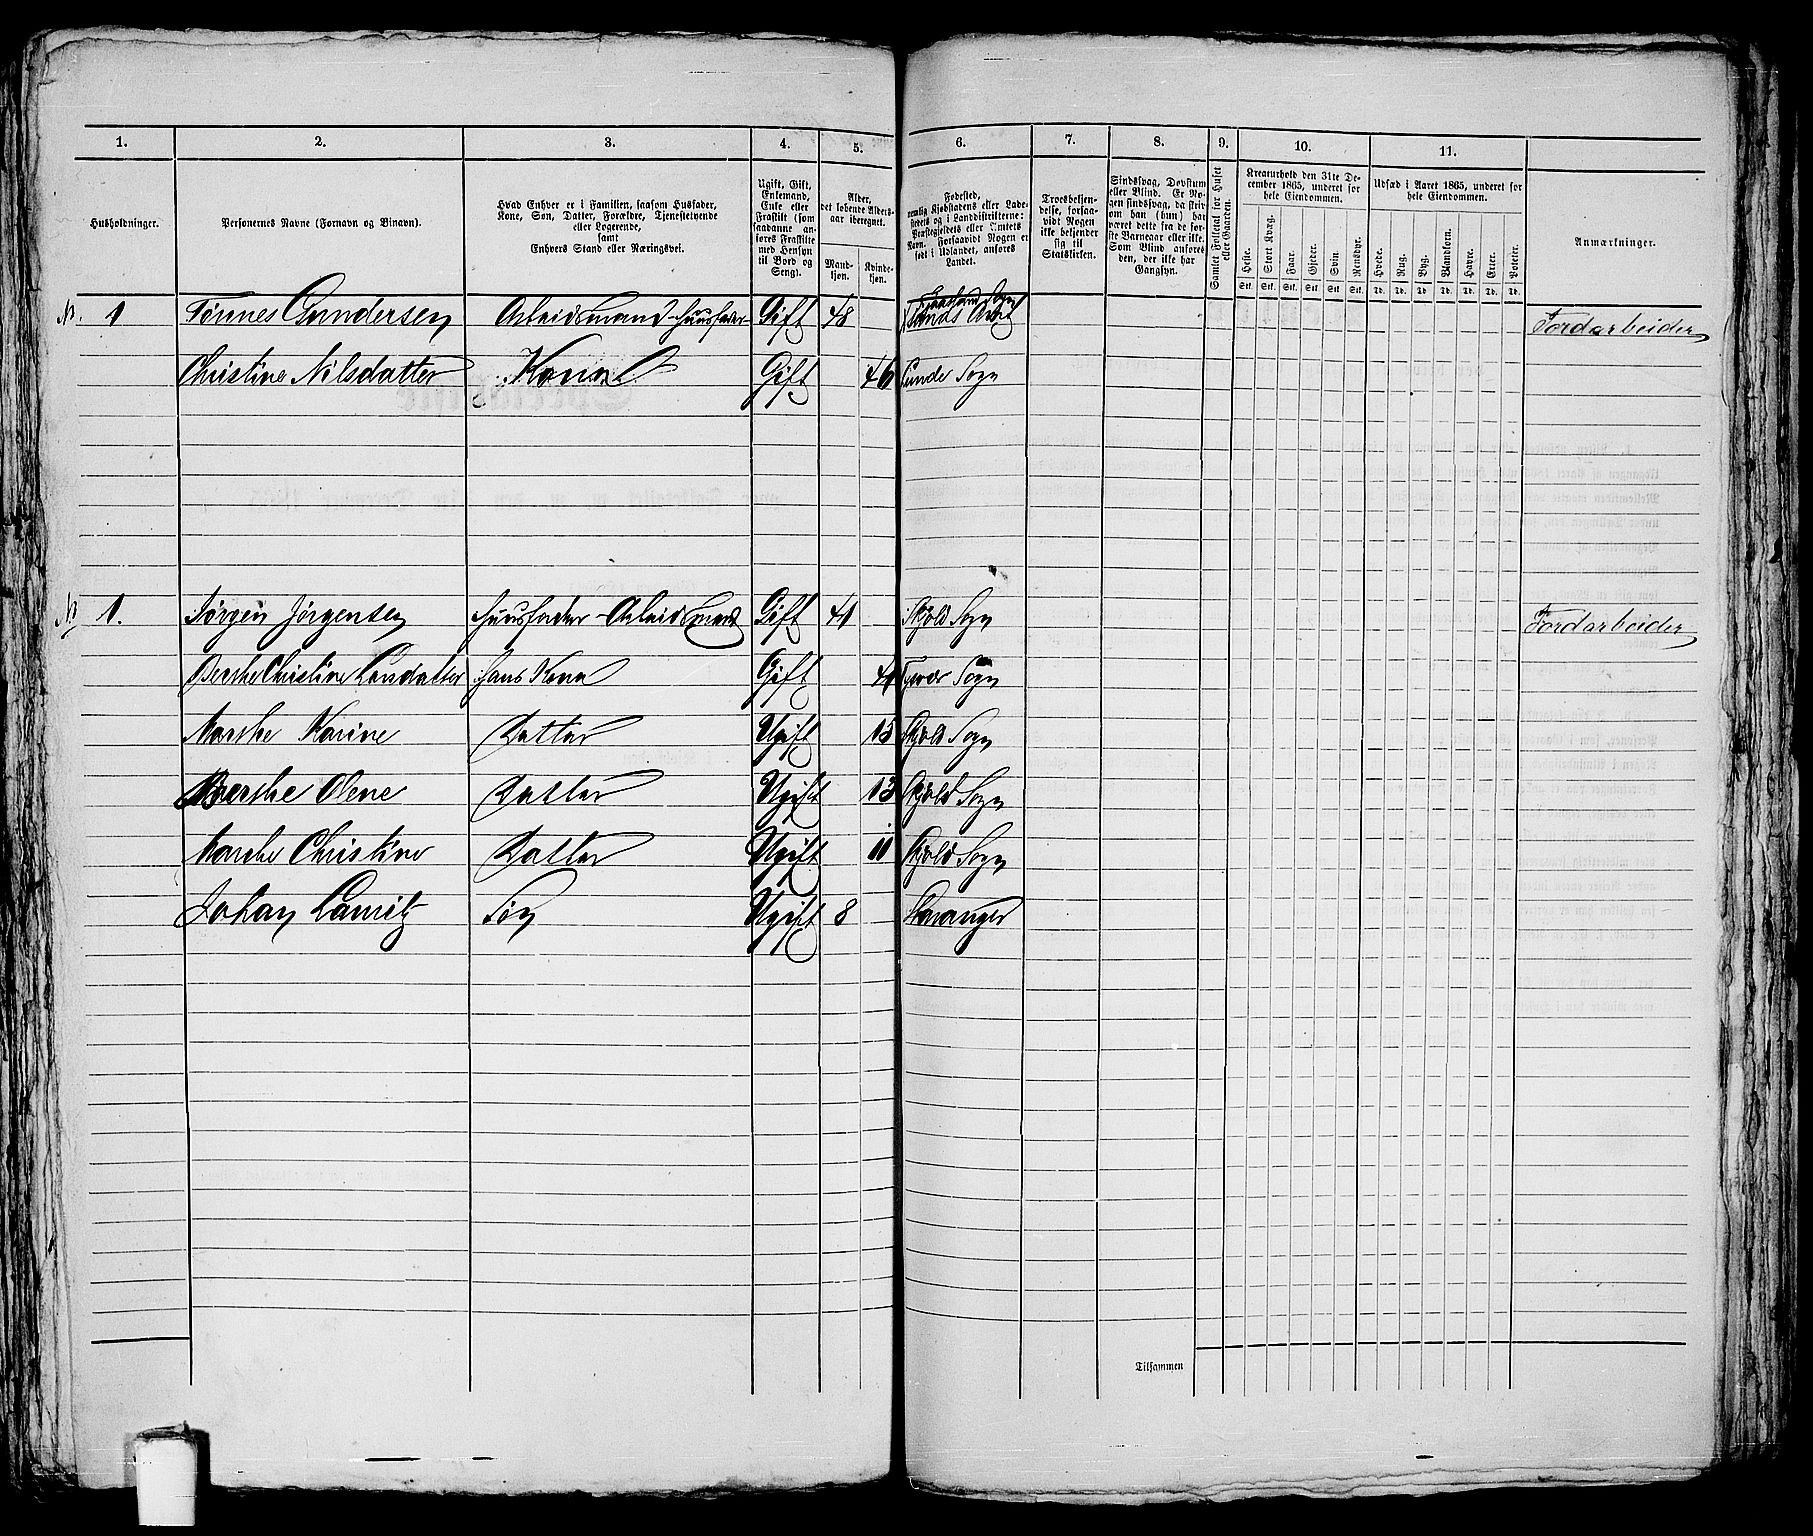 1. 2. 3. 4. 5. 6. 7. 8. 9. 10. 11.
Husholdninger.
Personernes Navne (Fornavn og Binavn).
Hvad Enhver er i Familien, saasom Husfader,
Kone, Søn, Datter, Forældre, Tjenestetyende
eller Logerende,
samt
Enhvers Stand eller Næringsvei.
Ugift, Gift,
Enkemand,
Enke eller
Fraskilt (som
saadanne an-
føres Fraskilte
med Hensyn
til Bord og
Seng).
Alder,
det løbende Alders-
aar iberegnet.
Mand-
kjøn.
Kvinde-
kjøn.
Fødested,
nemlig Kjøbstadens eller Lade-
stedets og i Landdistrikterne:
Præstegjeldets eller Sognets
Navn. Forsaavidt Nogen er
født i Udlandet, anføres
Landet.
Troesbekjen-
delse, forsaa-
vidt Nogen
ikke bekjender
sig til
Statskirken.
Sindssvag, Døvstum
eller Blind. Er No-
gen sindssvag, da skriv
om han (hun) har
været det fra de før-
ste Barneaar eller ikke.
Som Blind anføres
den, der ikke har
Gangsyn.
Samlet Folketal for Huset
eller Gaarden.
Kreaturhold den 31te De-
cember 1865, underet for
hele Eiendommen.
Heste. Stort Kvæg. Faar. Gjeder. Svin. Rensdyr.
Stk. Stk. Stk. Stk. Stk. Stk.
Udsæd i Aaret 1865, underet for
hele Eiendommen.
Hvede. Rug. Byg. Blandkorn. Havre. Erter. Poteter.
Td. Td. Td. Td. Td. Td. Td.
Anmærkninger.
N. 1 Tønnes Gundersen Arbeidsmand-Huusfader- Gift 48 Sogn Jordarbeider
Christine Nilsdatter Kona Gift 46 Lunde Sogn
N 1. Jørgen Jørgensen Huusfader - Arbeidsmand Gift 41 Skjold Sogn Jordarbeider
Berthe Christine hans Kona Gift Sogn
Marthe Karine Datter Ugift 15 Skjold Sogn
Berthe Olene Datter Ugift 13 Skjold Sogn
Marthe Christine Datter Ugift 11 Skjold Sogn
Johan Lauritz Søn Ugift 8 Stavanger
Tilsammen